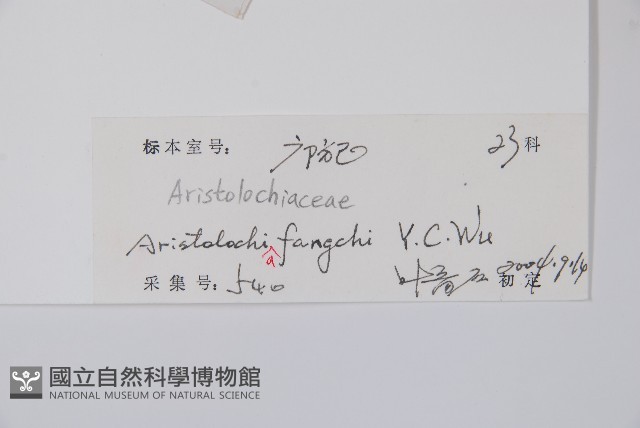 标本室号: 广防己 23科
Aristolochiaceae
Aristolochia fangchi Y.C.Wu
采集号: 540 叶 初定 2004.9.14
國立自然科學博物館
NATIONAL MUSEUM OF NATURAL SCIENCE